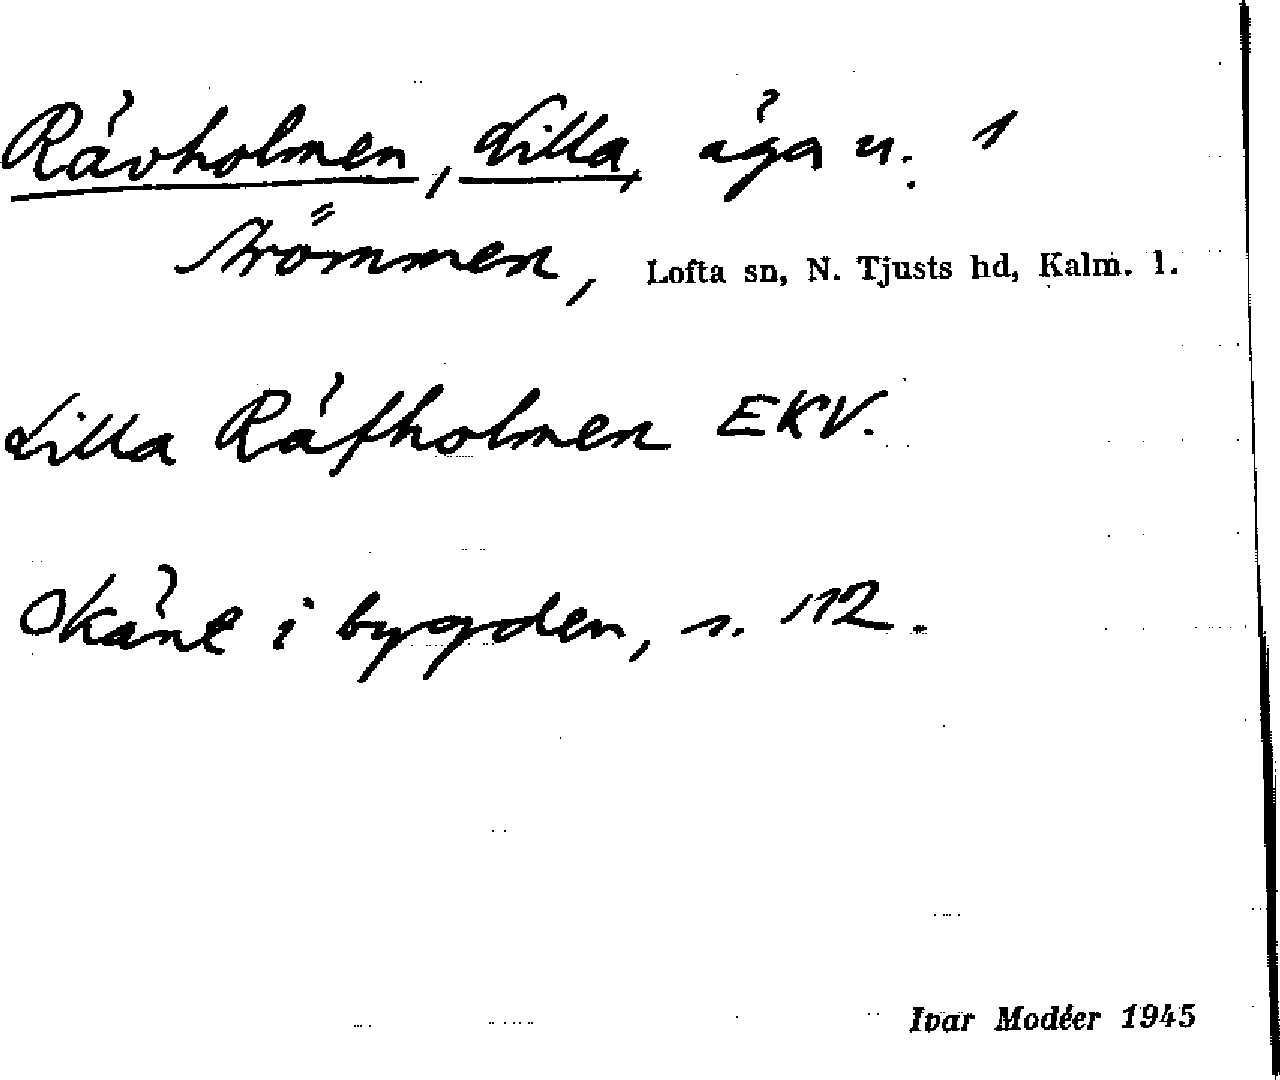 Rävholmen, Lilla, äga u. 1
Strömmen, Lofta sn, N. Tjusts hd, Kalm. l.
Lilla Räfholmen EKV.
Okänt i bygden, s. 112.
Ivar Modéer 1945